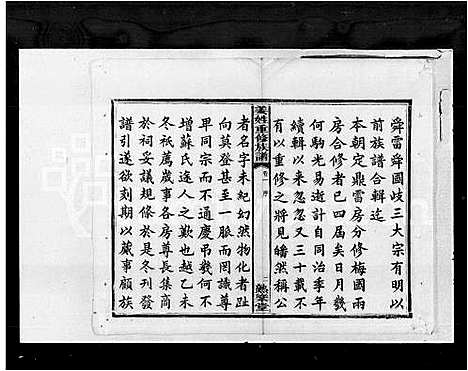 舜雷舜國歧三大宗有明以
前族譜合輯迄
本朝定鼎雷房分修梅國兩
房合修者已四屆矣日月幾
何駒光易逝計自同治季年
續輯以來忽忽又三十載不
有以重修之將見皤然稱公
姜姓重修族譜
卷一
序
者名字未紀幻然物化者趾
向莫登甚至一脈而罔識尊
卑同宗而不通慶弔幾何不
增蘇氏途人之歎也越乙未
冬祇薦歲事各房尊長集商
於祠妥議規條於是冬刊發
譜引遂欲刻期以蕆事顧族